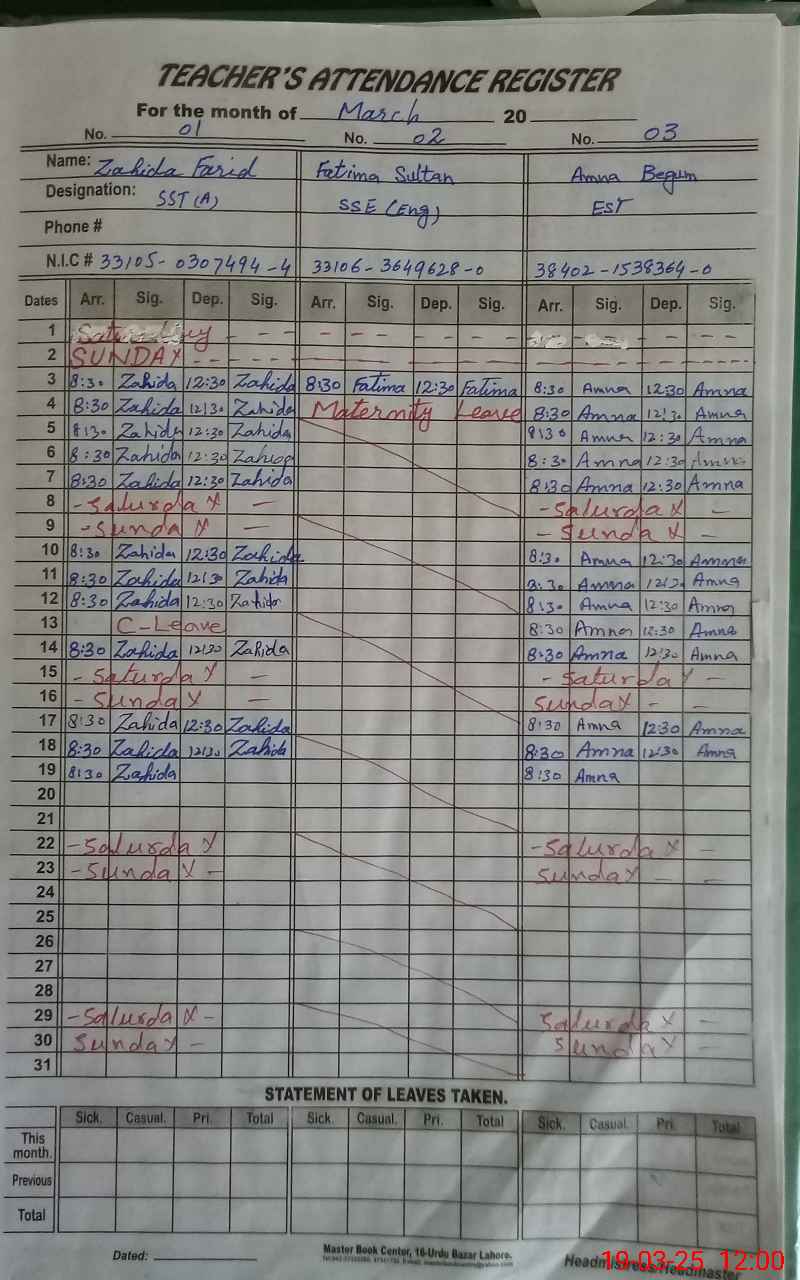 TEACHER'S ATTENDANCE REGISTER
For the month of March 20
No. 01 No. 02 No. 03
Name: Zahida Farid Fatima Sultan Amna Begum
Designation: SST (A) SSE (Eng) EST
Phone #
N.I.C # 33105-0307494-4 33106-3649628-0 38402-1538364-0
Dates Arr. Sig. Dep. Sig. Arr. Sig. Dep. Sig. Arr. Sig. Dep. Sig.
1 Saturday - - - - - - - - -
2 SUNDAY - - - - - - - - -
3 8:30 Zahida 12:30 Zahida 8:30 Fatima 12:30 Fatima 8:30 Amna 12:30 Amna
4 8:30 Zahida 12:30 Zahida Maternity Leave 8:30 Amna 12:30 Amna
5 8:30 Zahida 12:30 Zahida 8:30 Amna 12:30 Amna
6 8:30 Zahida 12:30 Zahida 8:30 Amna 12:30 Amna
7 8:30 Zahida 12:30 Zahida 8:30 Amna 12:30 Amna
8 - Saturday - - Saturday -
9 - Sunday - - Sunday -
10 8:30 Zahida 12:30 Zahida 8:30 Amna 12:30 Amna
11 8:30 Zahida 12:30 Zahida 8:30 Amna 12:30 Amna
12 8:30 Zahida 12:30 Zahida 8:30 Amna 12:30 Amna
13 C-Leave 8:30 Amna 12:30 Amna
14 8:30 Zahida 12:30 Zahida 8:30 Amna 12:30 Amna
15 - Saturday - - Saturday -
16 - Sunday - Sunday - -
17 8:30 Zahida 12:30 Zahida 8:30 Amna 12:30 Amna
18 8:30 Zahida 12:30 Zahida 8:30 Amna 12:30 Amna
19 8:30 Zahida 8:30 Amna
20
21
22 - Saturday - Saturday -
23 - Sunday - Sunday - -
24
25
26
27
28
29 - Saturday - Saturday -
30 Sunday - Sunday -
31
STATEMENT OF LEAVES TAKEN.
Sick. Casual. Pri. Total Sick. Casual. Pri. Total Sick. Casual. Pri. Total
This month.
Previous
Total
Dated:
Master Book Center, 16-Urdu Bazar Lahore.
Headmistress/Headmaster
19.03.25 12:00